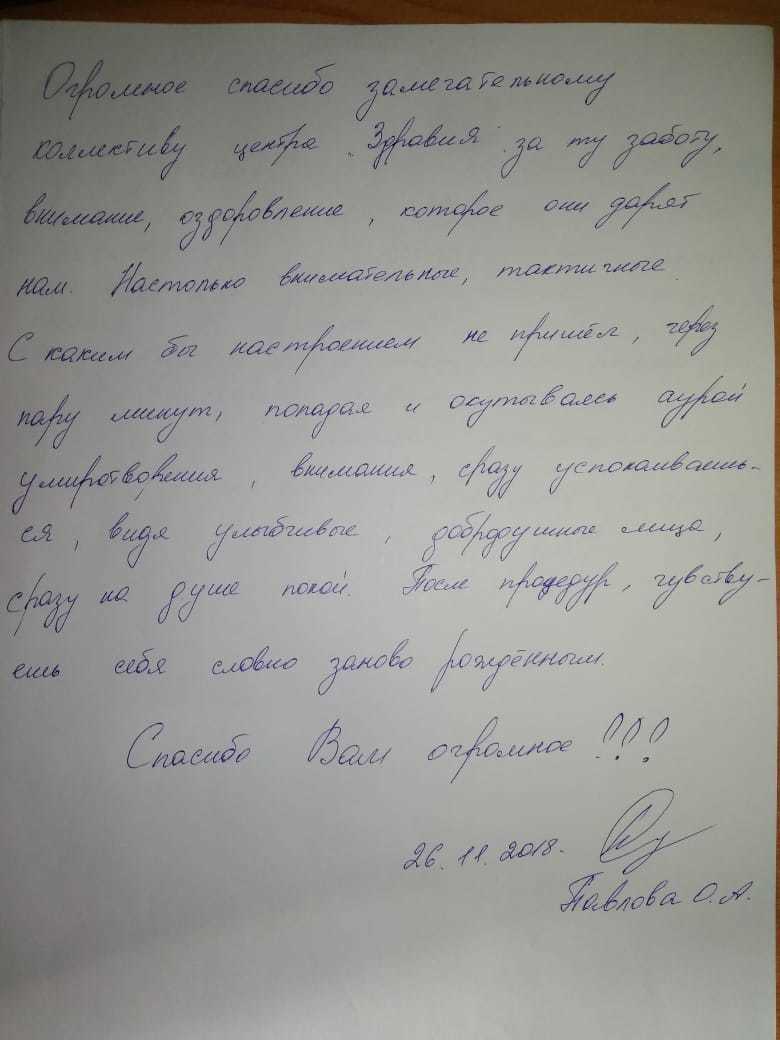 Огромное спасибо замечательному
коллективу центра "Здравия" за ту заботу,
внимание, оздоровление, которое они дарят
нам. Настолько внимательные, тактичные.
С каким бы настроением не пришёл, через
пару минут, попадая и окутываясь аурой
умиротворения, внимания, сразу успокаиваешь-
ся, видя улыбчивые, добродушные лица,
сразу на душе покой. После процедур, чувству-
ешь себя словно заново рождённым.
Спасибо Вам огромное!!!
26.11.2018.
Павлова О.А.